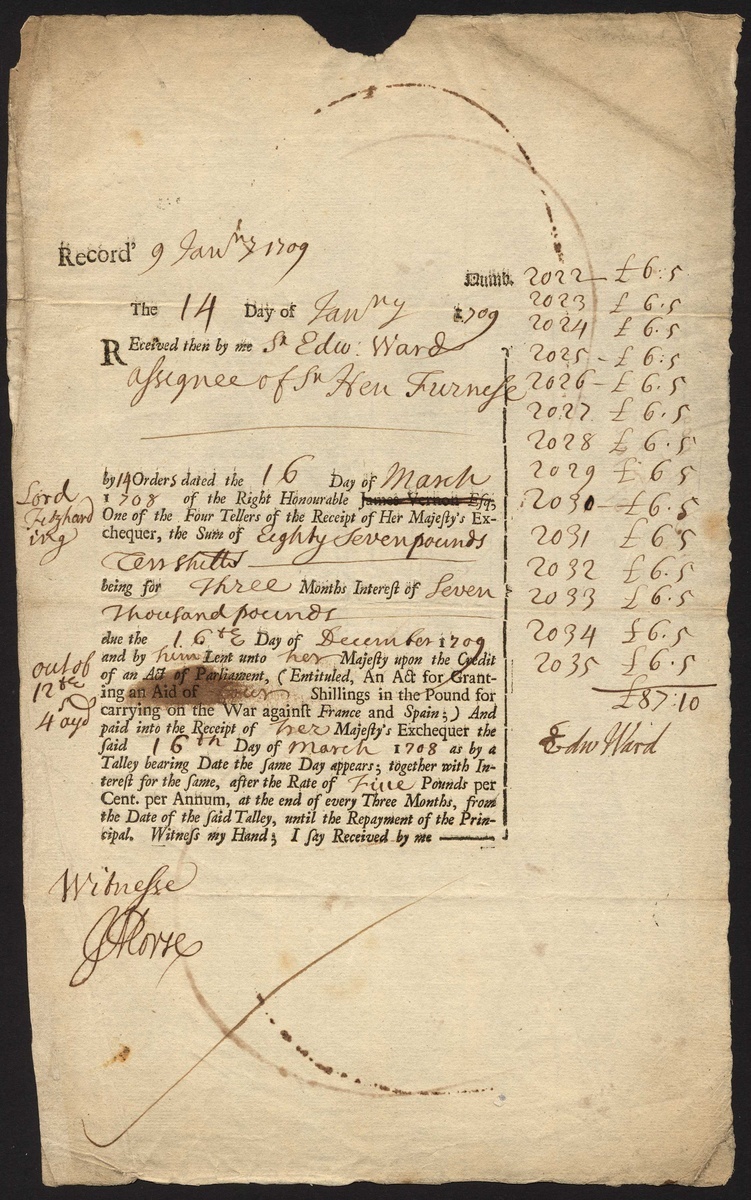 Record' 9 Janry 1709
Numb. 2022 — £6:5
2023 £6:5
2024 £6:5
2025 – £6:5
2026 – £6:5
2027 £6.5
2028 £6.5
2029 £6 5
2030 — £6.5
2031 £6.5
2032 £6.5
2033 £6.5
2034 £6.5
2035 £6.5
£87:10
Edw Ward
The 14 Day of Janry 1709
REceived then by me Sr Edw: Ward
assignee of Sr Hen Furnese
by 14 Orders dated the 16 Day of March
1708 of the Right Honourable James Vernon Esq;
Lord
Fitzhard
ing
One of the Four Tellers of the Receipt of Her Majesty's Ex-
chequer, the Sum of Eighty Seven pounds
Ten shills
being for Three Months Interest of Seven
Thousand pounds
due the 16th Day of December 1709
and by him Lent unto her Majesty upon the Credit
of an Act of Parliament, (Entituled, An Act for Grant-
ing an Aid of Four Shillings in the Pound for
carrying on the War against France and Spain;) And
paid into the Receipt of her Majesty's Exchequer the
said 16th Day of March 1708 as by a
Talley bearing Date the same Day appears; together with In-
terest for the same, after the Rate of Five Pounds per
Cent. per Annum, at the end of every Three Months, from
the Date of the said Talley, until the Repayment of the Prin-
cipal. Witness my Hand; I say Received by me
out of
12th
4s ayd
Witnesse